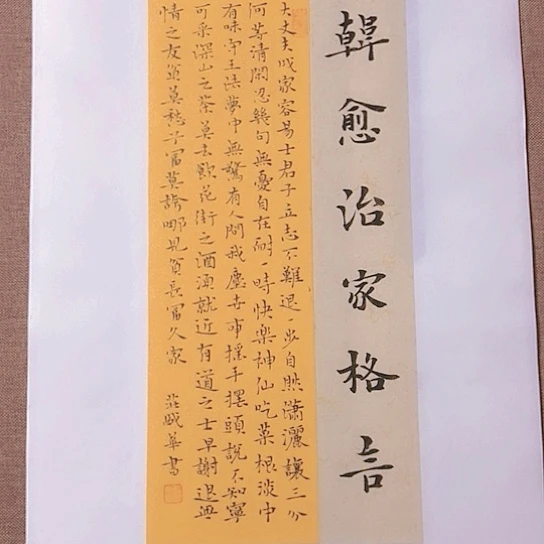 韓愈治家格言
大丈夫成家容易士君子立志不難退一步自然瀟灑讓三分
何等清閑忍幾句無憂自在耐一時快樂神仙吃菜根淡中
有味守王法夢中無驚有人問我塵世事搖手擺頭說不知寧
可采深山之茶莫去飲花街之酒須就近有道之士早謝退無
情之友貧莫愁兮富莫誇哪見貧長富久家
華書